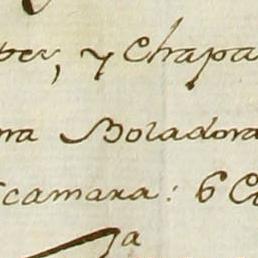 per, y Chapa
na Boladora
camara: 6 C
ja